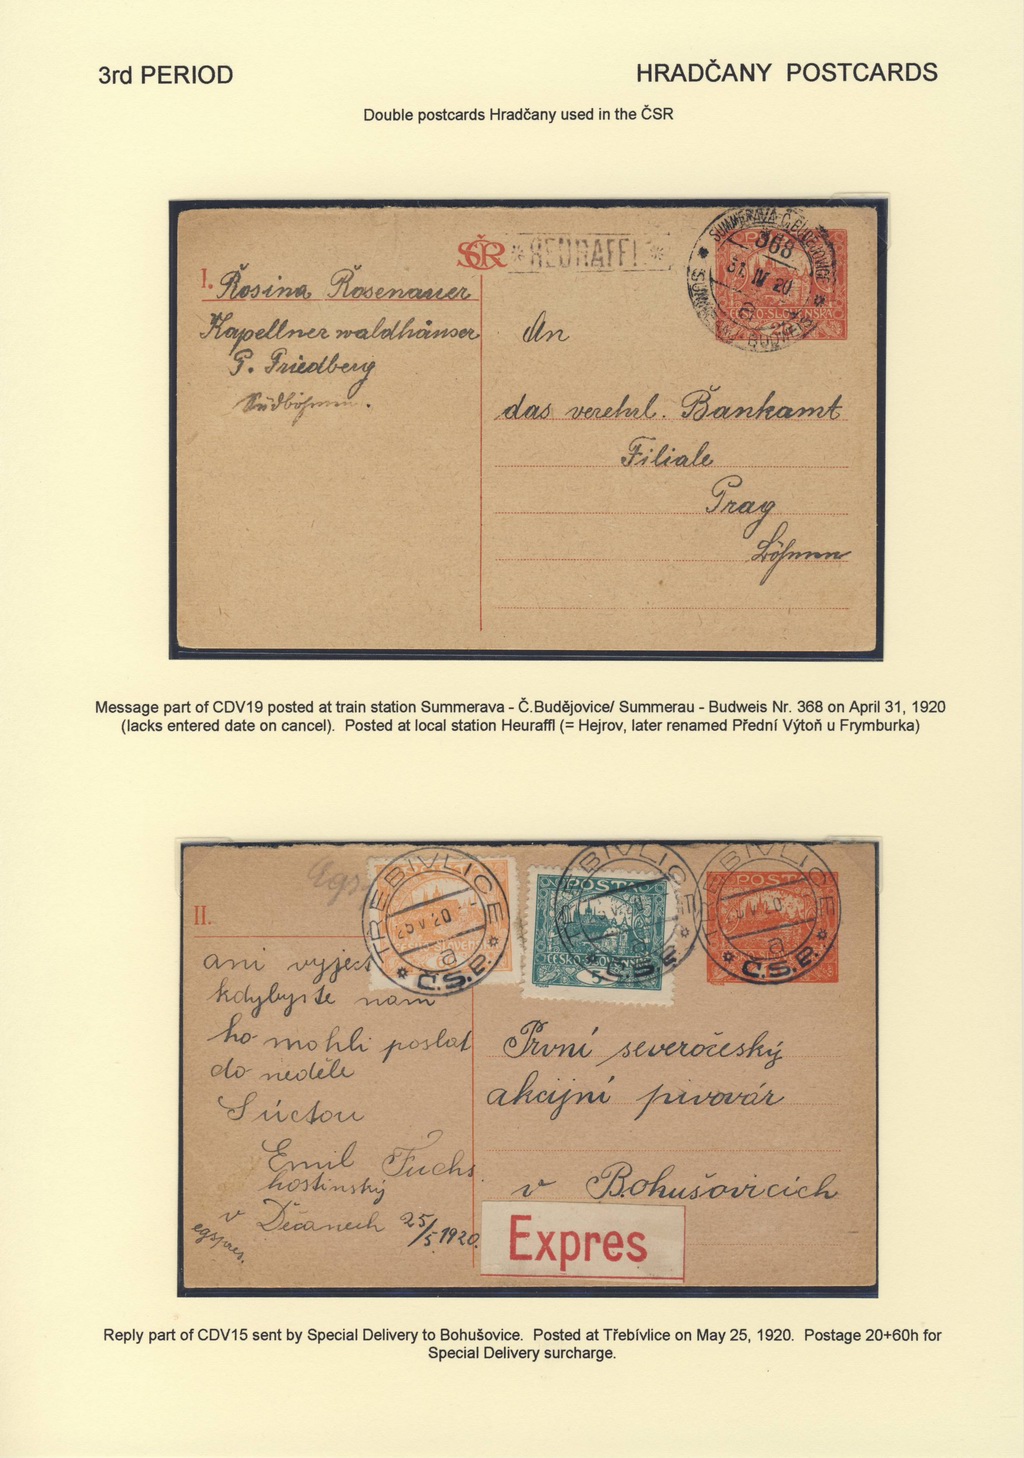 3rd PERIOD
HRADČANY POSTCARDS
Double postcards Hradčany used in the ČSR
SUMMERAVA-Č.BUDĚJOVICE
368
31. IV 20
SUMMERAU-BUDWEIS
POSTA
ČESKO-SLOVENSKÁ
ČSR
*HEURAFFL*
I.
Rosina Rosenauer
Kapellner waldhäuser
P. Friedberg
Südböhmen.
An
das verehrl. Bankamt
Filiale
Prag
Böhmen
Message part of CDV19 posted at train station Summerava - Č.Budějovice/ Summerau - Budweis Nr. 368 on April 31, 1920
(lacks entered date on cancel). Posted at local station Heuraffl (= Hejrov, later renamed Přední Výtoň u Frymburka)
TŘEBIVLICE
25 V 20
a
* Č.S.P. *
TŘEBIVLICE
a
* Č.S.P. *
5
TŘEBIVLICE
a
* Č.S.P. *
POSTA
II.
ani vyjeti
kdybyste nam
ho mohli poslat
do neděle
S úctou
Emil Fuchs
hostinský
v Děčanech 25/5 1920.
egspres.
První severočeský
akcijní pivovár
v Bohušovicích
Expres
Reply part of CDV15 sent by Special Delivery to Bohušovice. Posted at Třebívlice on May 25, 1920. Postage 20+60h for
Special Delivery surcharge.